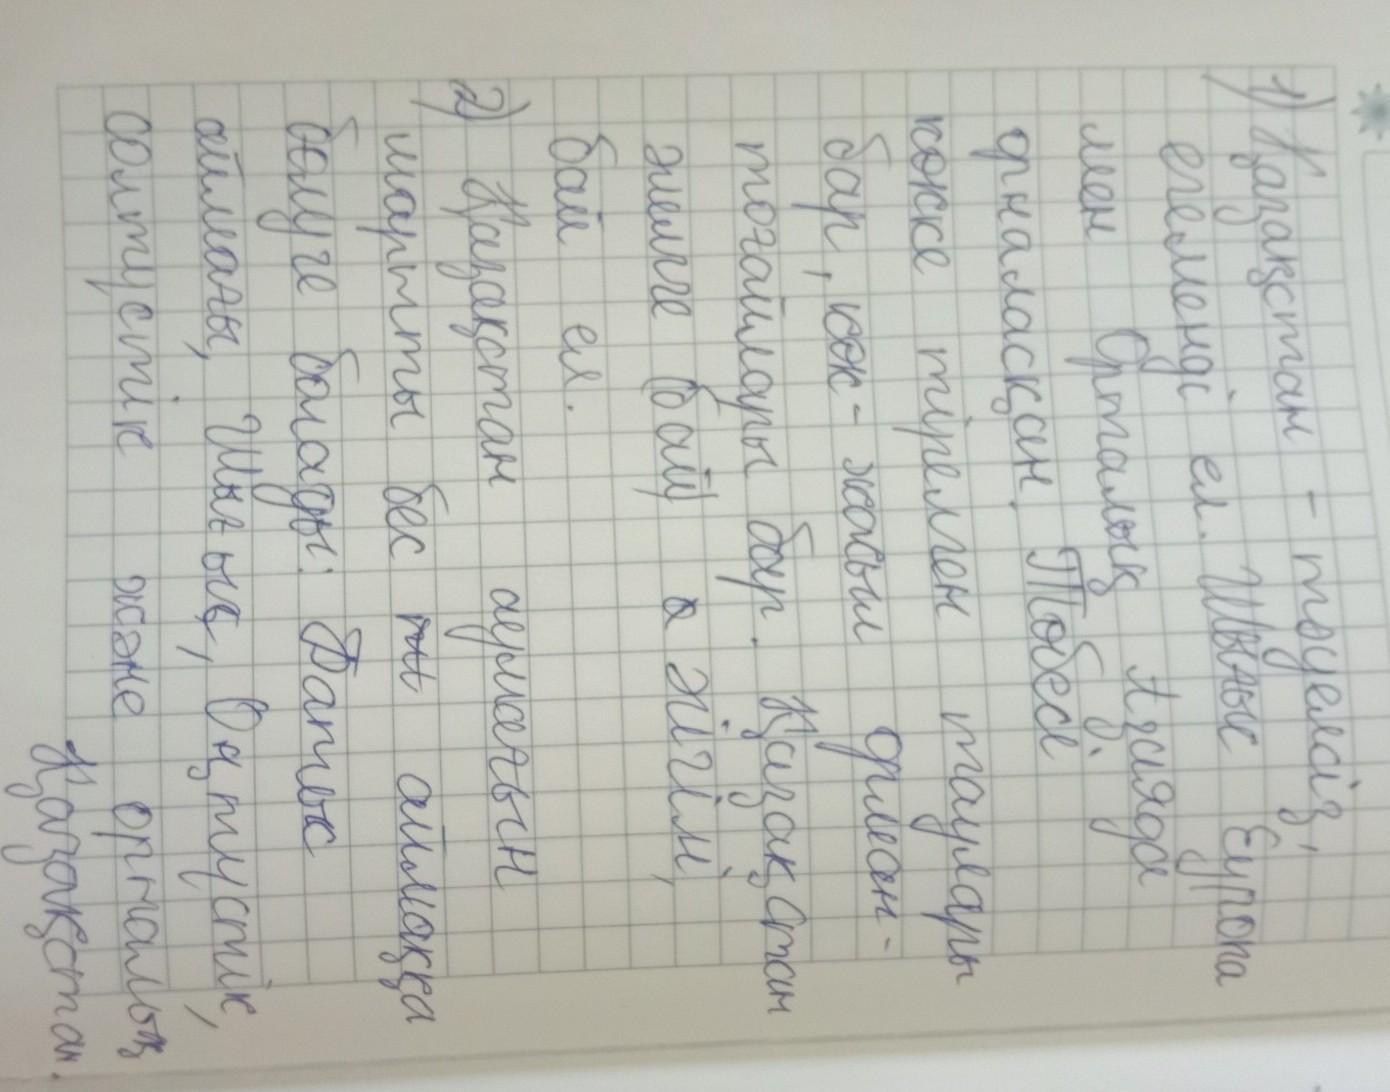 1) Қазақстан - тәуелсіз,
егеменді ел. Шығыс Еуропа
мен Орталық Азияда
орналасқан. Төбесі
көкке тірелген таулары
бар, көк-жасыл орман-
тоғайлары бар. Қазақстан
жемге бай
бай ел.
2) Қазақстан аумағын
шартты бес аймаққа
бөлуге болады: Батыс
аймағы, Шығыс, Оңтүстік,
солтүстік және орталық
Қазақстан.